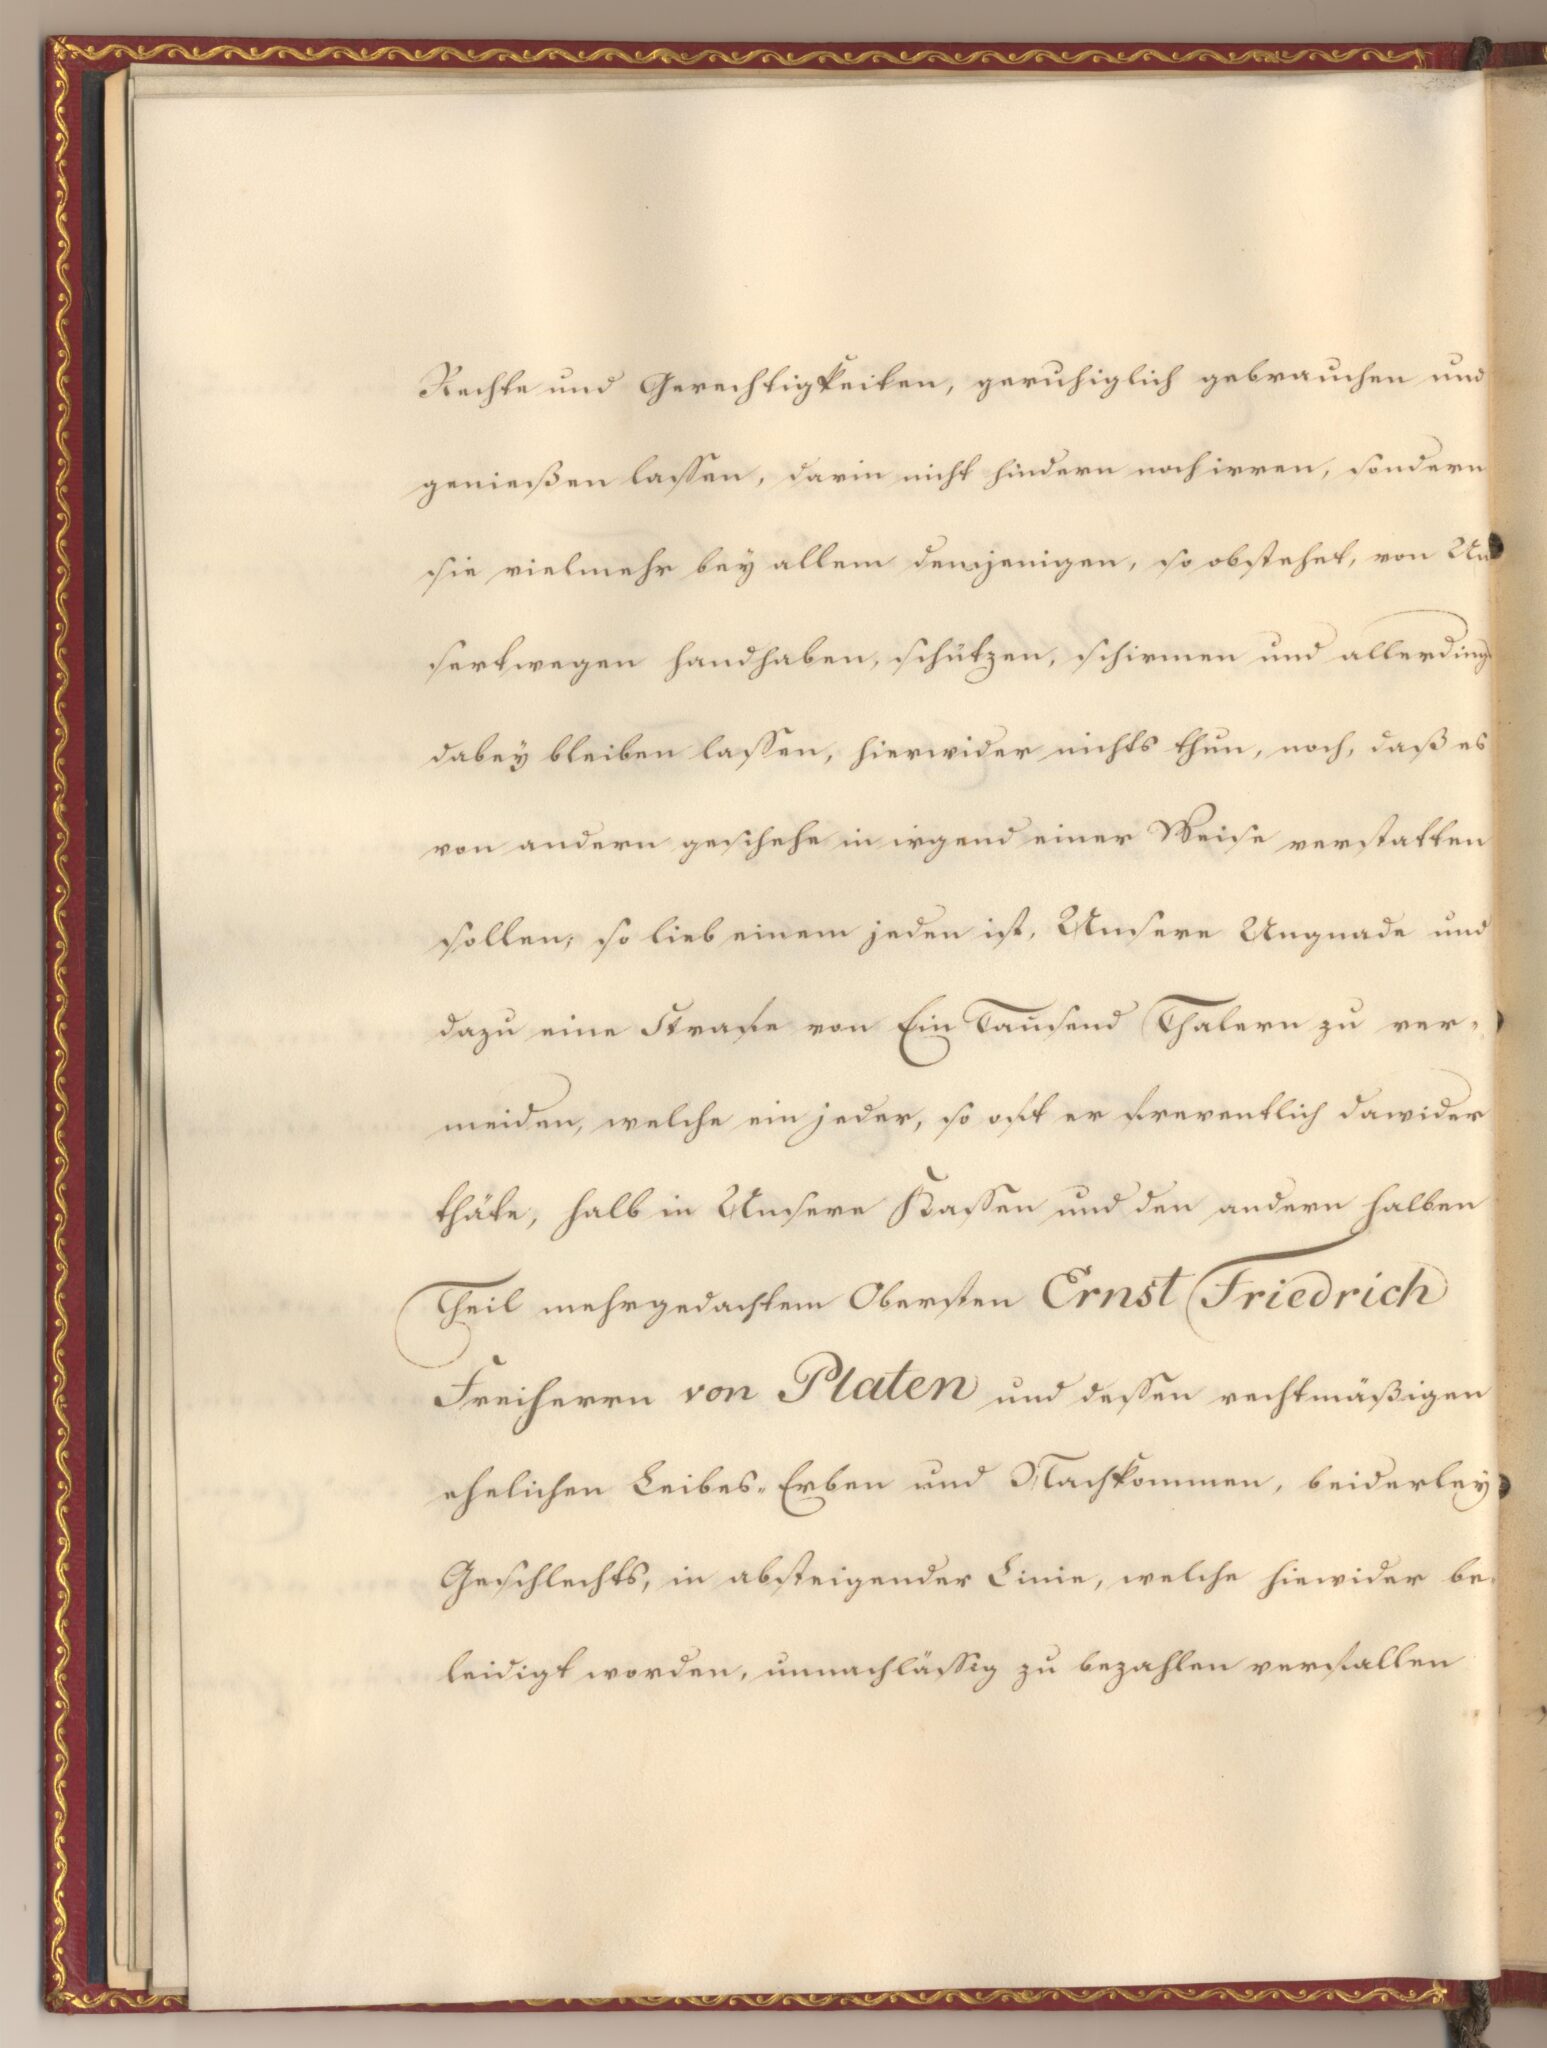 Rechte und Gerechtigkeiten, geruhiglich gebrauchen und
genießen lassen, darin nicht hindern noch irren, sondern
sie vielmehr bey allem demjenigen, so obstehet, von Un
sertwegen handhaben, schützen, schirmen und allerdings
dabey bleiben lassen, hierwider nichts thun, noch, daß es
von andern geschehe in irgend einer Weise verstatten
sollen, so lieb einem jeden ist, Unsere Ungnade und
dazu eine Strafe von Ein Tausend Thalern zu ver-
meiden, welche ein jeder, so oft er freventlich dawider
thäte, halb in Unsere Kassen und den andern halben
Theil mehrgedachtem Obersten Ernst Friedrich
Freiherrn von Platen und dessen rechtmäßigen
ehelichen Leibes-Erben und Nachkommen, beiderley
Geschlechts, in absteigender Linie, welche hiewider be-
leidigt worden, unnachlässig zu bezahlen verfallen